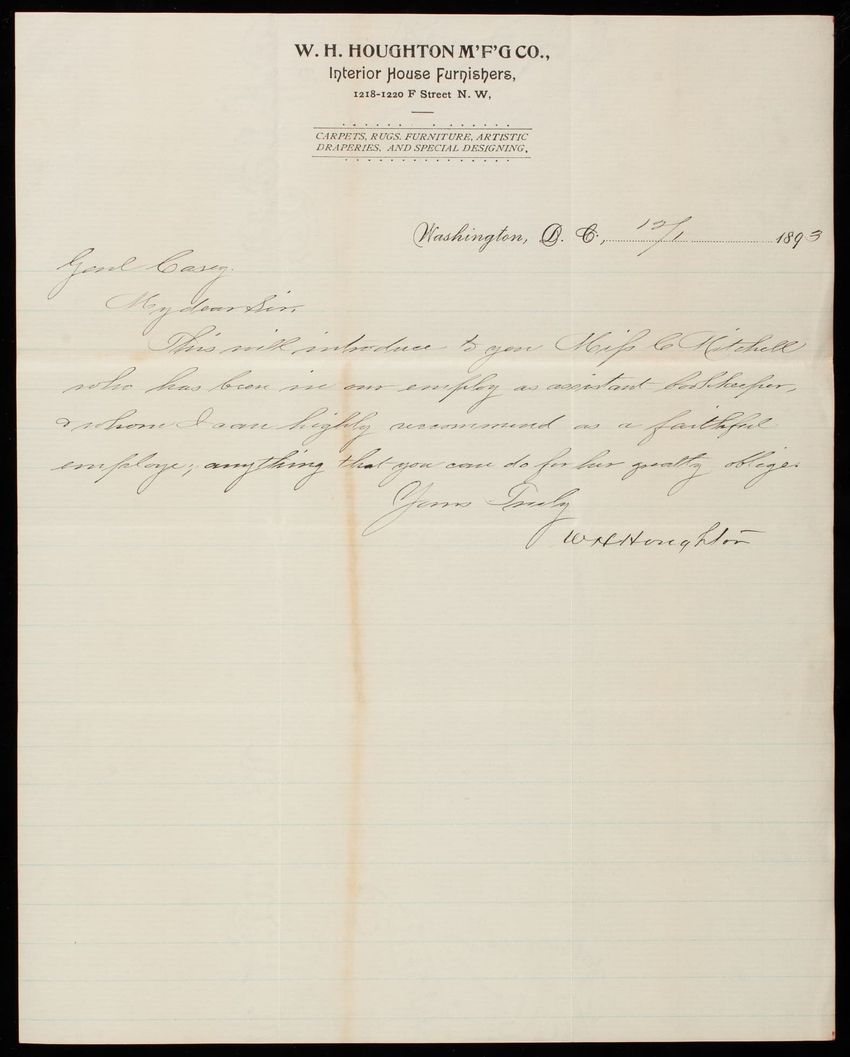 W. H. HOUGHTON M'F'G CO.,
Interior House Furnishers,
1218-1220 F Street N. W,
CARPETS, RUGS, FURNITURE, ARTISTIC
DRAPERIES, AND SPECIAL DESIGNING,
Washington, D. C., 12/1 1893
Genl Casey.
My dear Sir,
This will introduce to you Miss C Mitchell
who has been in our employ as assistant bookkeeper,
& whom I can highly recommend as a faithful
employe; anything that you can do for her greatly oblige.
Yours Truly
W H Houghton